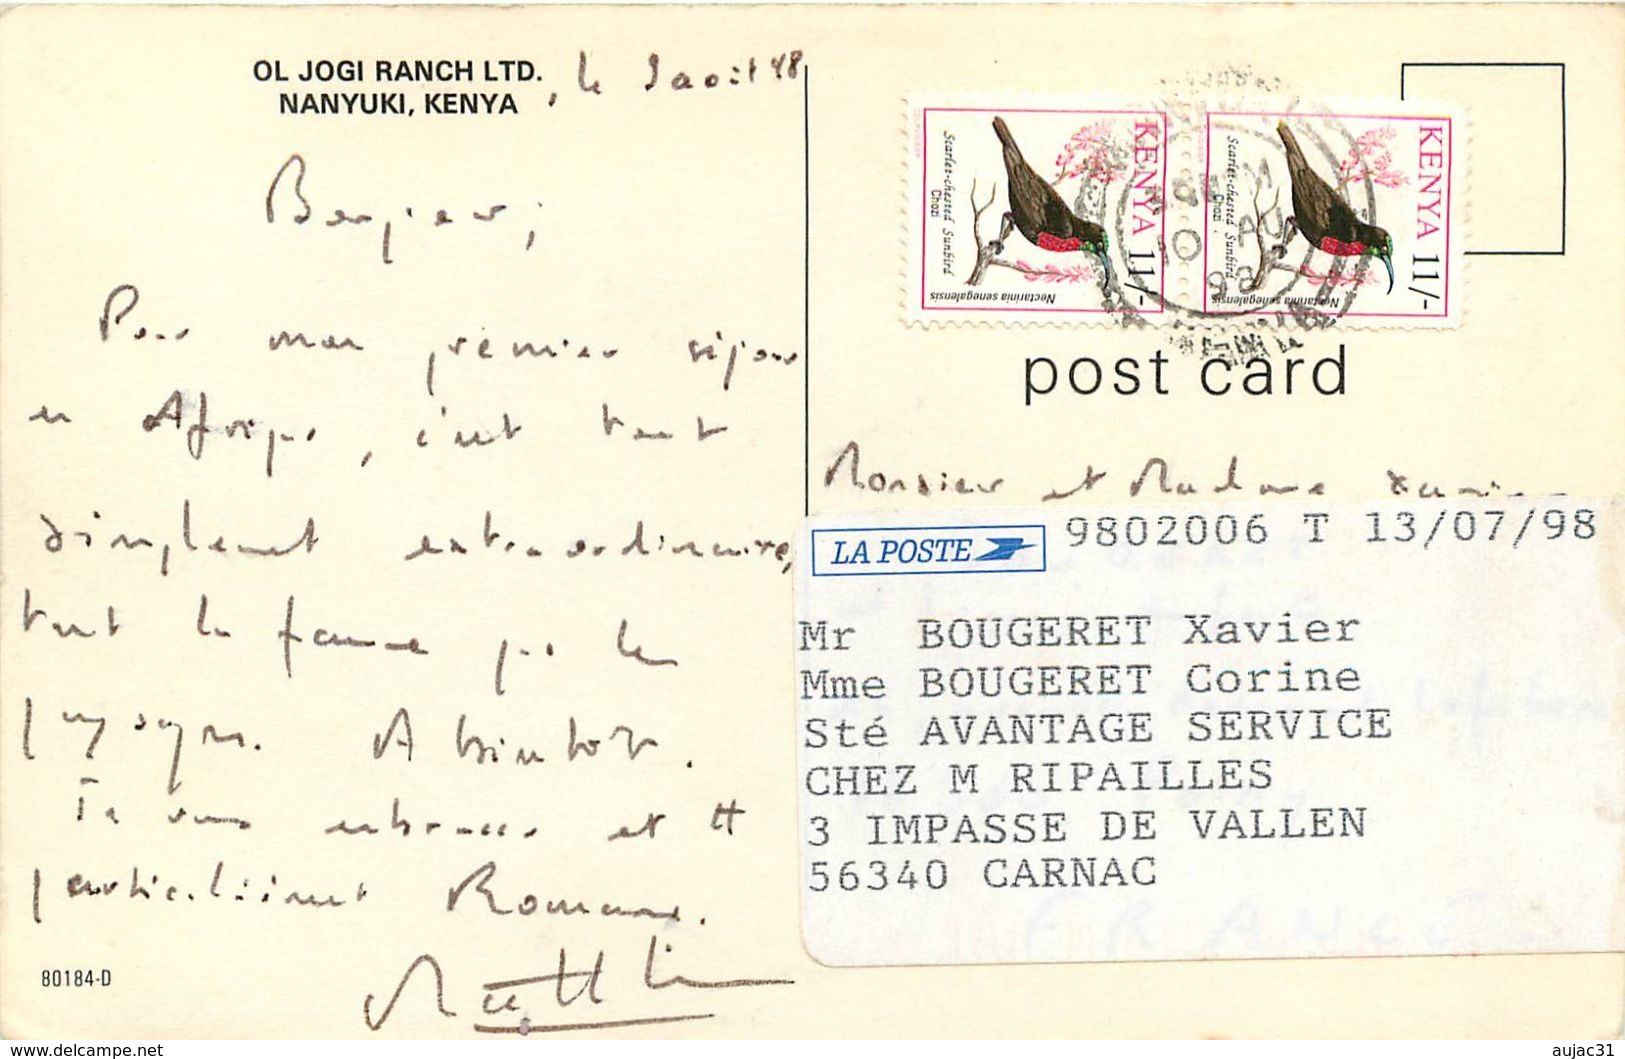 OL JOGI RANCH LTD.
NANYUKI, KENYA
, le 9 août 98
Bonjour,
Pour mon premier séjour
en Afrique, c'est tout
simplement extraordinaire,
tant la faune que les
paysages. A bientôt.
Je vous embrasse et tt
particulièrement Romane.
80184-D
KENYA 11/-
Scarlet-chested Sunbird
Chozi
Nectarinia senegalensis
KENYA 11/-
Scarlet-chested Sunbird
Chozi
Nectarinia senegalensis
10 AU
98
post card
Monsieur et Madame Xavier
LA POSTE 9802006 T 13/07/98
Mr BOUGERET Xavier
Mme BOUGERET Corine
Sté AVANTAGE SERVICE
CHEZ M RIPAILLES
3 IMPASSE DE VALLEN
56340 CARNAC
FRANCE
www.delcampe.net
aujac31